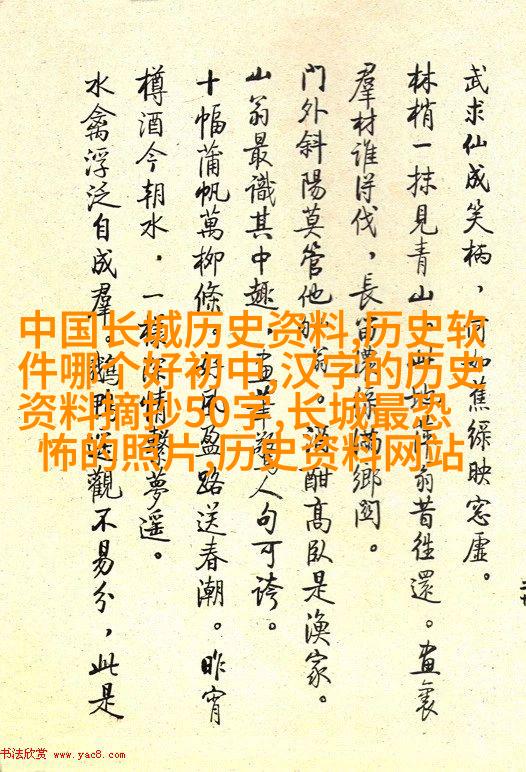 武求仙成笑柄，何如蕉綠映窓虛。
林梢一抹見青山，翁昔往還。畫裏
羣材誰得伐，長綠滿鄉閭。
門外斜陽莫管他翁。酣高臥是漁家。
山翁最識其中趣，畫筆驚人句可誇。
十幅蒲帆萬柳條。好風盈路送春潮。昨宵
樽酒今朝水，一樣深情繫夢遥。
水禽浮泛自成羣。鵝鴨送觀不易分，此是
中国长城历史资料,历史软
件哪个好初中,汉字的历史
资料摘抄50字,长城最恐
怖的照片,历史资料网站
书法欣赏 www.yac8.com